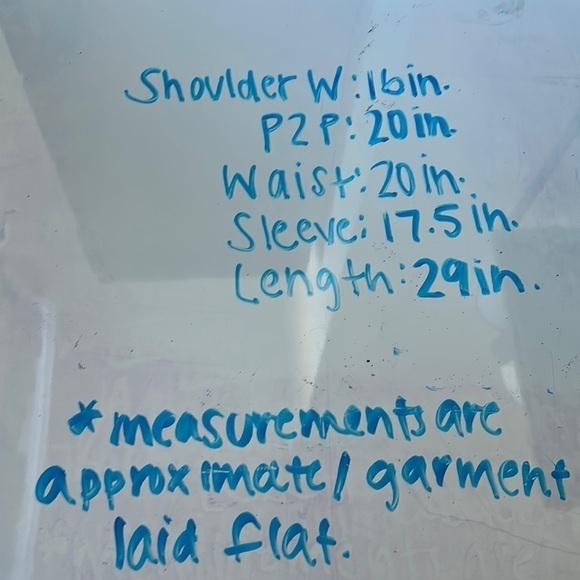 Shoulder W: 16in.
P2P: 20in.
Waist: 20in.
Sleeve: 17.5in.
Length: 29in.
*measurements are
approximate/ garment
laid flat.